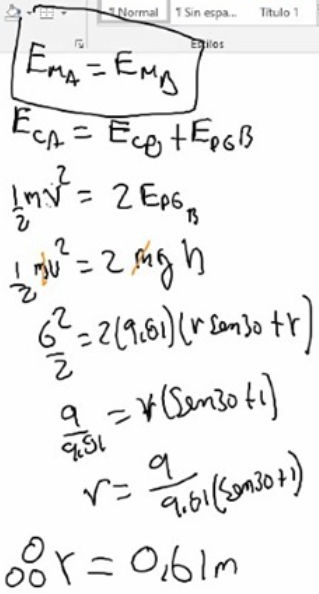 ¶ Normal ¶ Sin espa... Título 1
Estilos
E_{M_A} = E_{M_B}
E_{CA} = E_{CB} + E_{PGB}
1/2 mv² = 2 E_{PG_B}
1/2 mv² = 2 mg h
6²/2 = 2(9,81)(r sen30 + r)
9/9,81 = r(Sen30+1)
r = 9/9,81(sen30+1)
∴ r = 0,61m